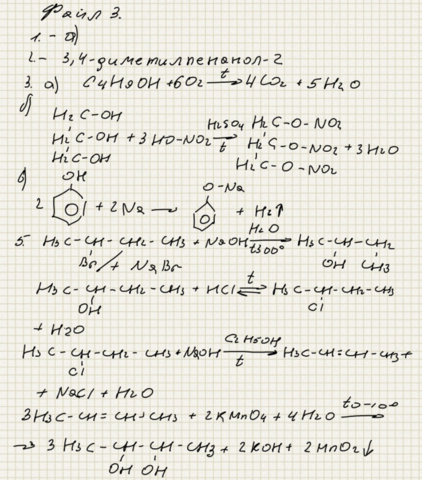 Файл 3.
1. - а)
2. - 3,4-диметилпенанол-2
3. а) C4H9OH + 6O2 →t 4CO2 + 5H2O
б)
H2C-OH H2SO4 H2C-O-NO2
H2C-OH + 3HO-NO2 →t H2C-O-NO2 + 3H2O
H2C-OH H2C-O-NO2
в) OH O-Na
2 + 2Na → + H2↑
5. H3C-CH-CH2-CH3 + NaOH →H2O t300° H3C-CH-CH2
Br + NaBr OH CH3
H3C-CH-CH2-CH3 + HCl ⇌t H3C-CH-CH2-CH3
OH Cl
+ H2O
H3C-CH-CH2-CH3 + NaOH →C2H5OH t H3C-CH=CH-CH3 +
Cl
+ NaCl + H2O
3H3C-CH=CH-CH3 + 2KMnO4 + 4H2O →t0-10°
→ 3H3C-CH-CH-CH3 + 2KOH + 2MnO2↓
OH OH